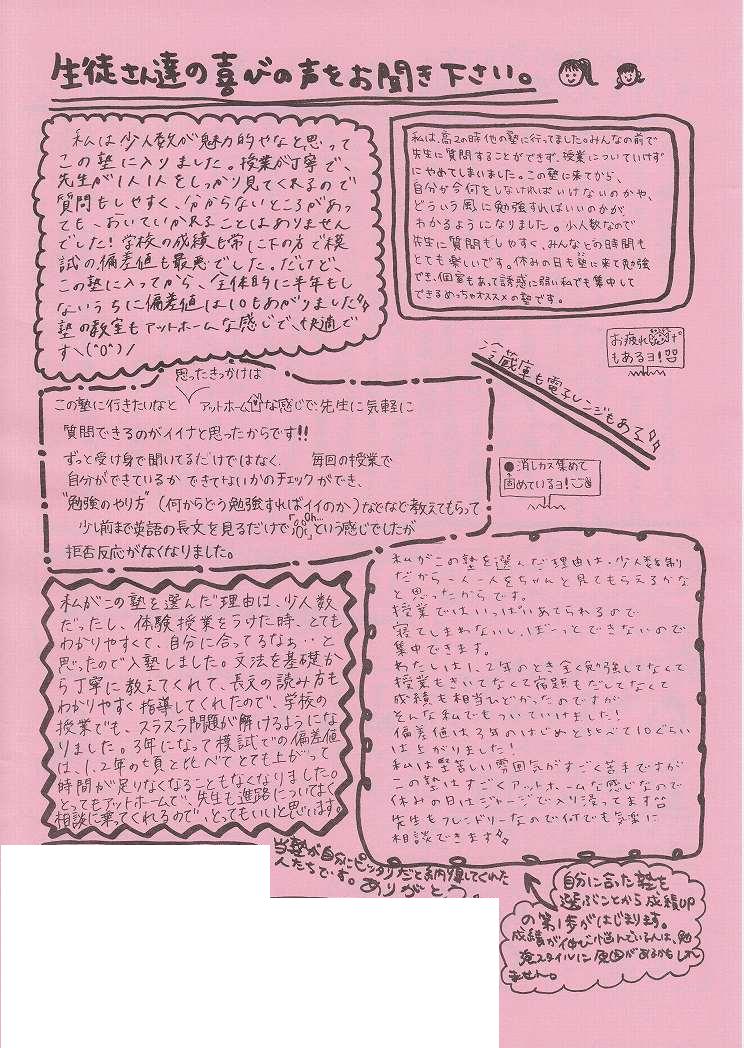 生徒さん達の喜びの声をお聞き下さい。
私は少人数が魅力的やなと思って
この塾に入りました。授業が丁寧で、
先生が1人1人をしっかり見てくれるので
質問もしやすく、分からないところがあっ
ても、おいていかれることはありません
でした!学校の成績も常に下の方で模
試の偏差値も最悪でした。だけど、
この塾に入ってから、全体的に半年もし
ないうちに偏差値は10もあがりました
塾の教室もアットホームな感じで、快適で
す\(^o^)/
私は、高2の時他の塾に行ってました。みんなの前で
先生に質問することができず、授業についていけず
にやめてしまいました。この塾に来てから、
自分が今何をしなければいけないのかや、
どういう風に勉強すればいいのかが
わかるようになりました。少人数なので
先生に質問もしやすく、みんなとの時間も
とても楽しいです。休みの日も塾に来て勉強
でき、個室もあって誘惑に弱い私でも集中して
できるめっちゃオススメの塾です。
お疲れ
もあるヨ!
冷蔵庫も電子レンジもある
思ったきっかけは
この塾に行きたいなと アットホームな感じで先生に気軽に
質問できるのがイイナと思ったからです!!
ずっと受け身で聞いてるだけではなく、 毎回の授業で
自分ができているか できてないかのチェックができ、
"勉強のやり方"(何からどう勉強すればイイのか)などなど教えてもらって
少し前まで英語の長文を見るだけで という感じでしたが
拒否反応がなくなりました。
●消しカス集めて
固めているヨ!
私がこの塾を選んだ理由は、少人数
だったし、体験授業をうけた時、とても
わかりやすくて、自分に合ってるなぁ・・と
思ったので入塾しました。文法を基礎か
ら丁寧に教えてくれて、長文の読み方も
わかりやすく指導してくれたので、学校の
授業でも、スラスラ問題が解けるようにな
りました。3年になって模試での偏差値
は、1.2年の頃と比べてとても上がって
時間が足りなくなることもなくなりました。
とってもアットホームで、先生も進路についてよく
相談に乗ってくれるので、とってもいいと思います。
私がこの塾を選んだ理由は、少人数制
だから一人一人をちゃんと見てもらえるかな
と思ったからです。
授業ではいっぱいあてられるので
寝てしまわないし、ぼーっとできないので
集中できます。
わたしは1、2年のとき全く勉強してなくて
授業もきいてなくて宿題もだしてなくて
成績も相当ひどかったのですが
そんな私でもついていけました!
偏差値は3年のはじめと比べて10ぐらい
は上がりました!
私は堅苦しい雰囲気がすごく苦手ですが
この塾はすごくアットホームな感じなので
休みの日はジャージで入り浸ってます
先生もフレンドリーなので何でも気楽に
相談できます
当塾が自分にピッタリだと納得してくれた
人たちです。ありがとう
自分に合った塾を
選ぶことから成績UP
の第1歩がはじまります。
成績が伸び悩んでいる人は、勉
強スタイルに原因があるかもしれ
ません。